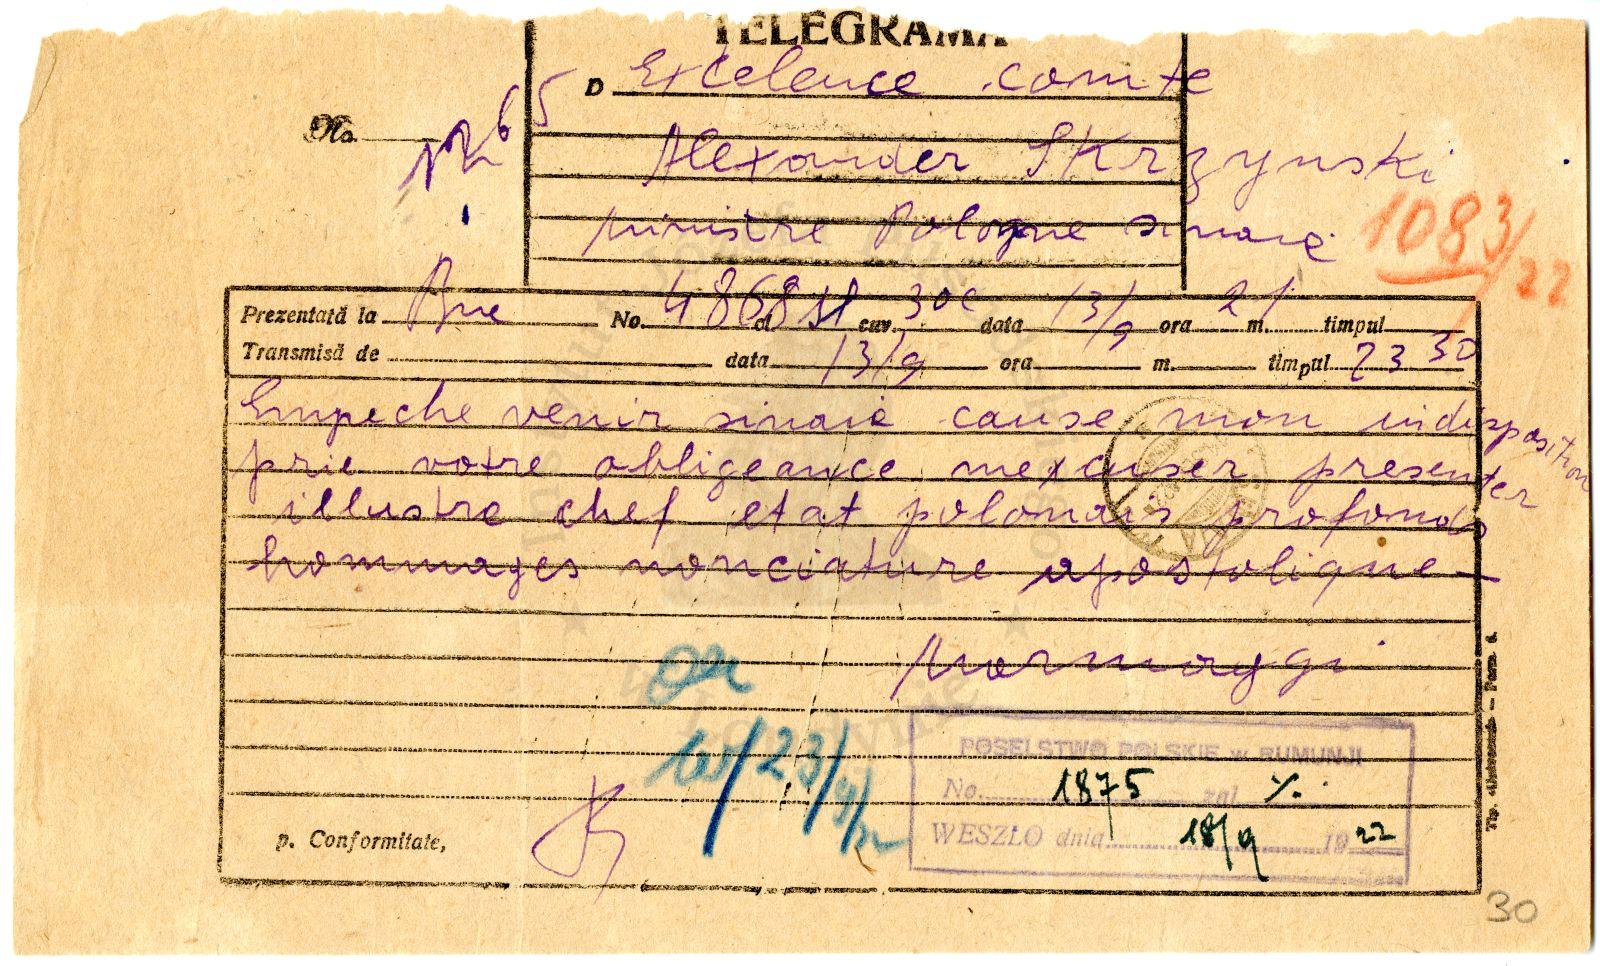 TELEGRAMA
D Excelence comte
No. 65
Alexander Skrzynski
ministre Pologne Sinaia
1083/22
Prezentată la Buc No. 4868 cuv. 30 data 13/9 ora 21 m. timpul
Transmisă de data 13/9 ora m. timpul 23 30
Empeche venir sinaia cause mon indisposition
prie votre obligeance mexcuser presenter
illustre chef etat polonais profonds
hommages nonciature apostolique
Marmaggi
POSELSTWO POLSKIE w RUMUNJI
No. 1875 zał %.
WESZŁO dnia 18/9 1922
p. Conformitate,
30